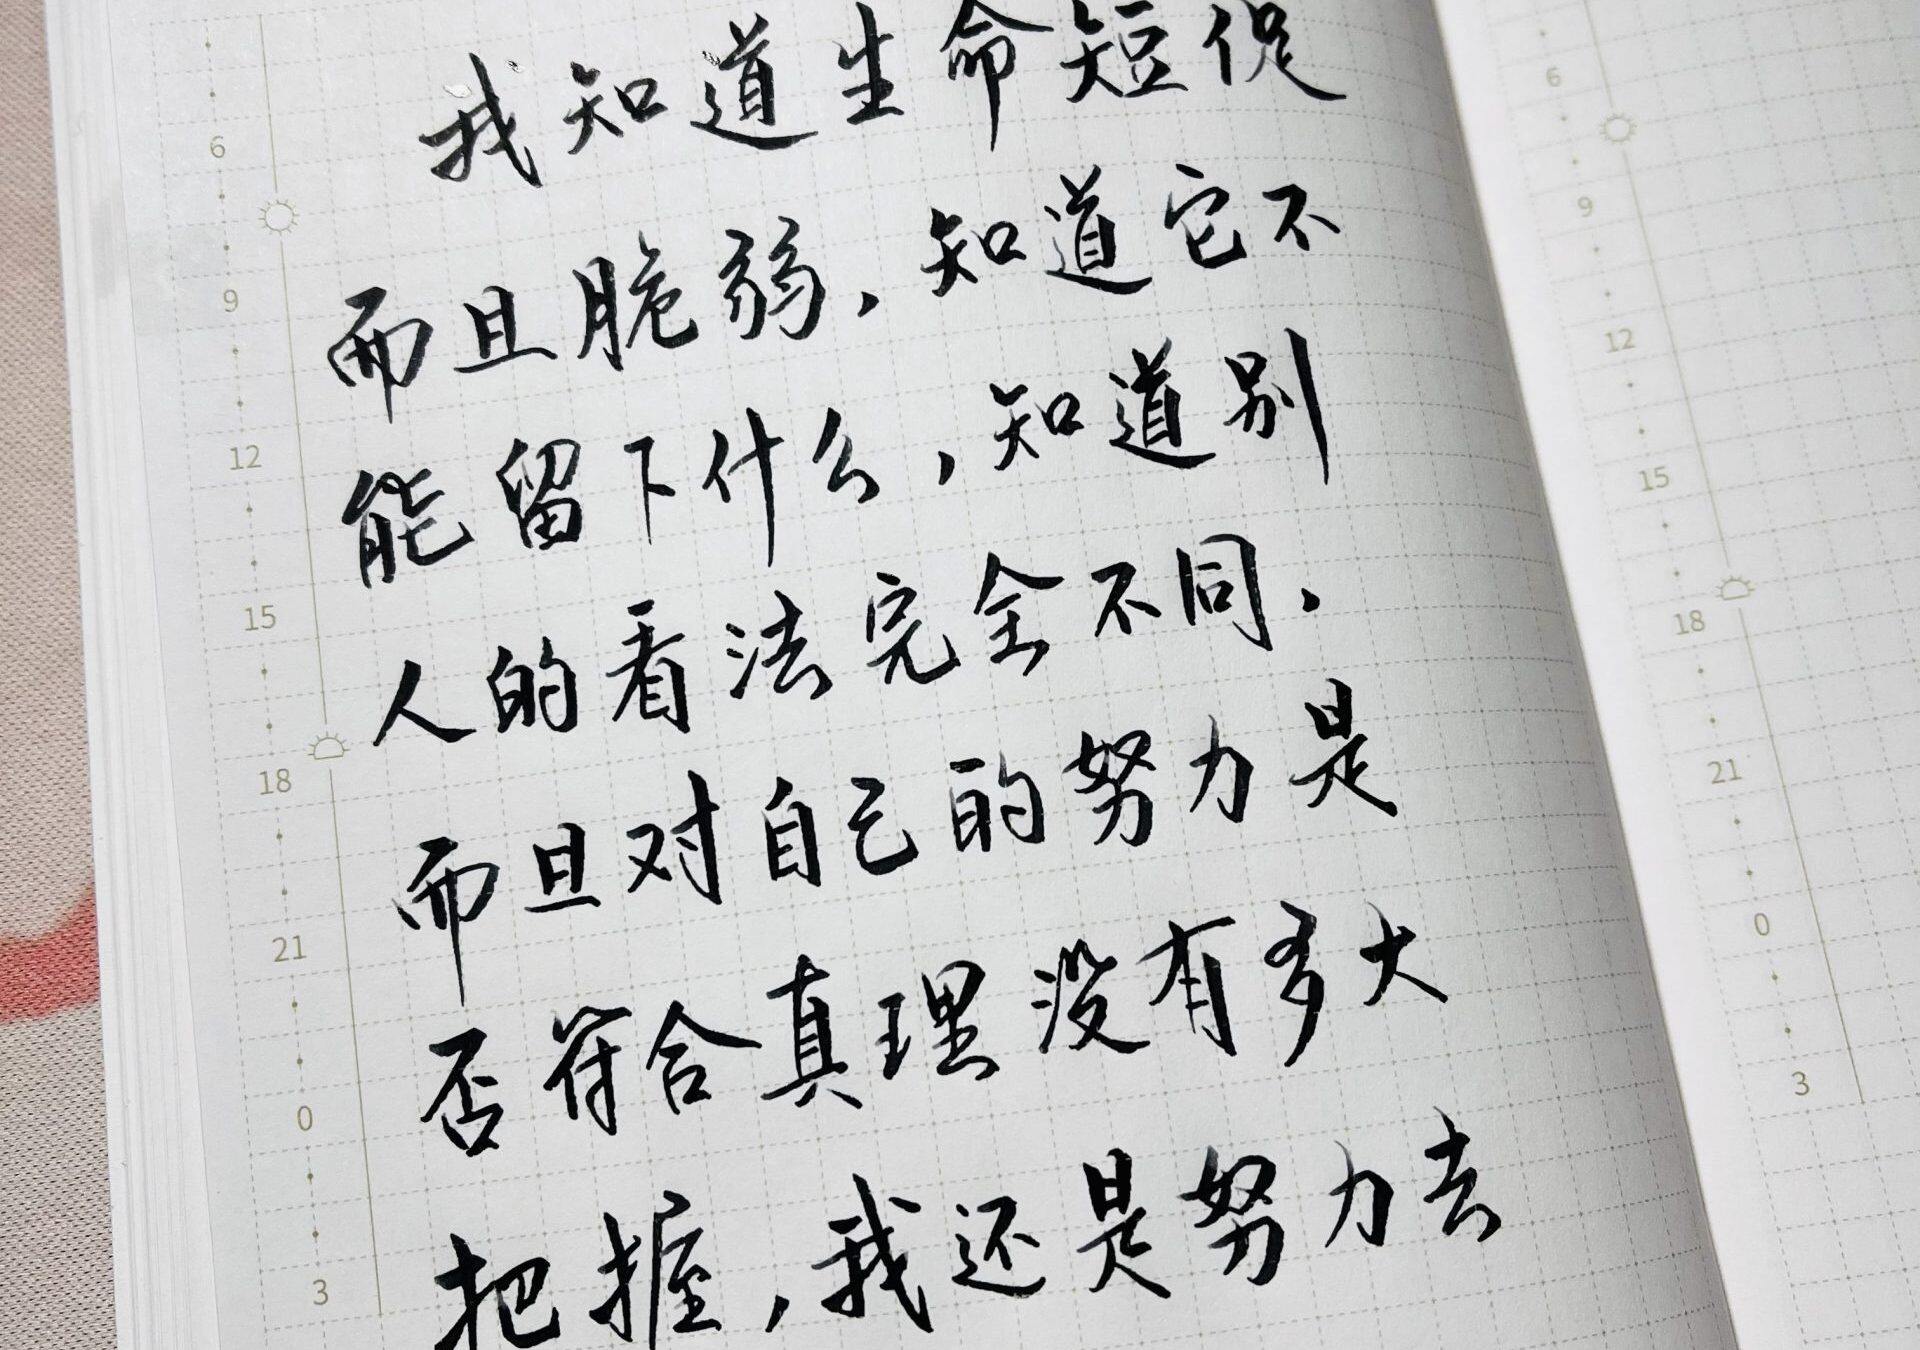 我知道生命短促
而且脆弱，知道它不
能留下什么，知道别
人的看法完全不同，
而且对自己的努力是
否符合真理没有多大
把握，我还是努力去
6
9
12
15
18
21
0
3
6
9
12
15
18
21
0
3